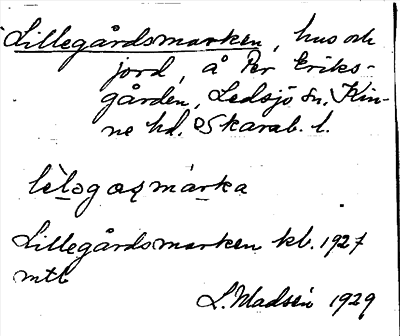 Lillegårdsmarken, hus och
jord, å Per Eriks-
gården, Ledsjö sn, Kin-
ne hd. Skarab. l.
Lillegårdsmarken kb. 1927
mtb
L. Madsén 1929